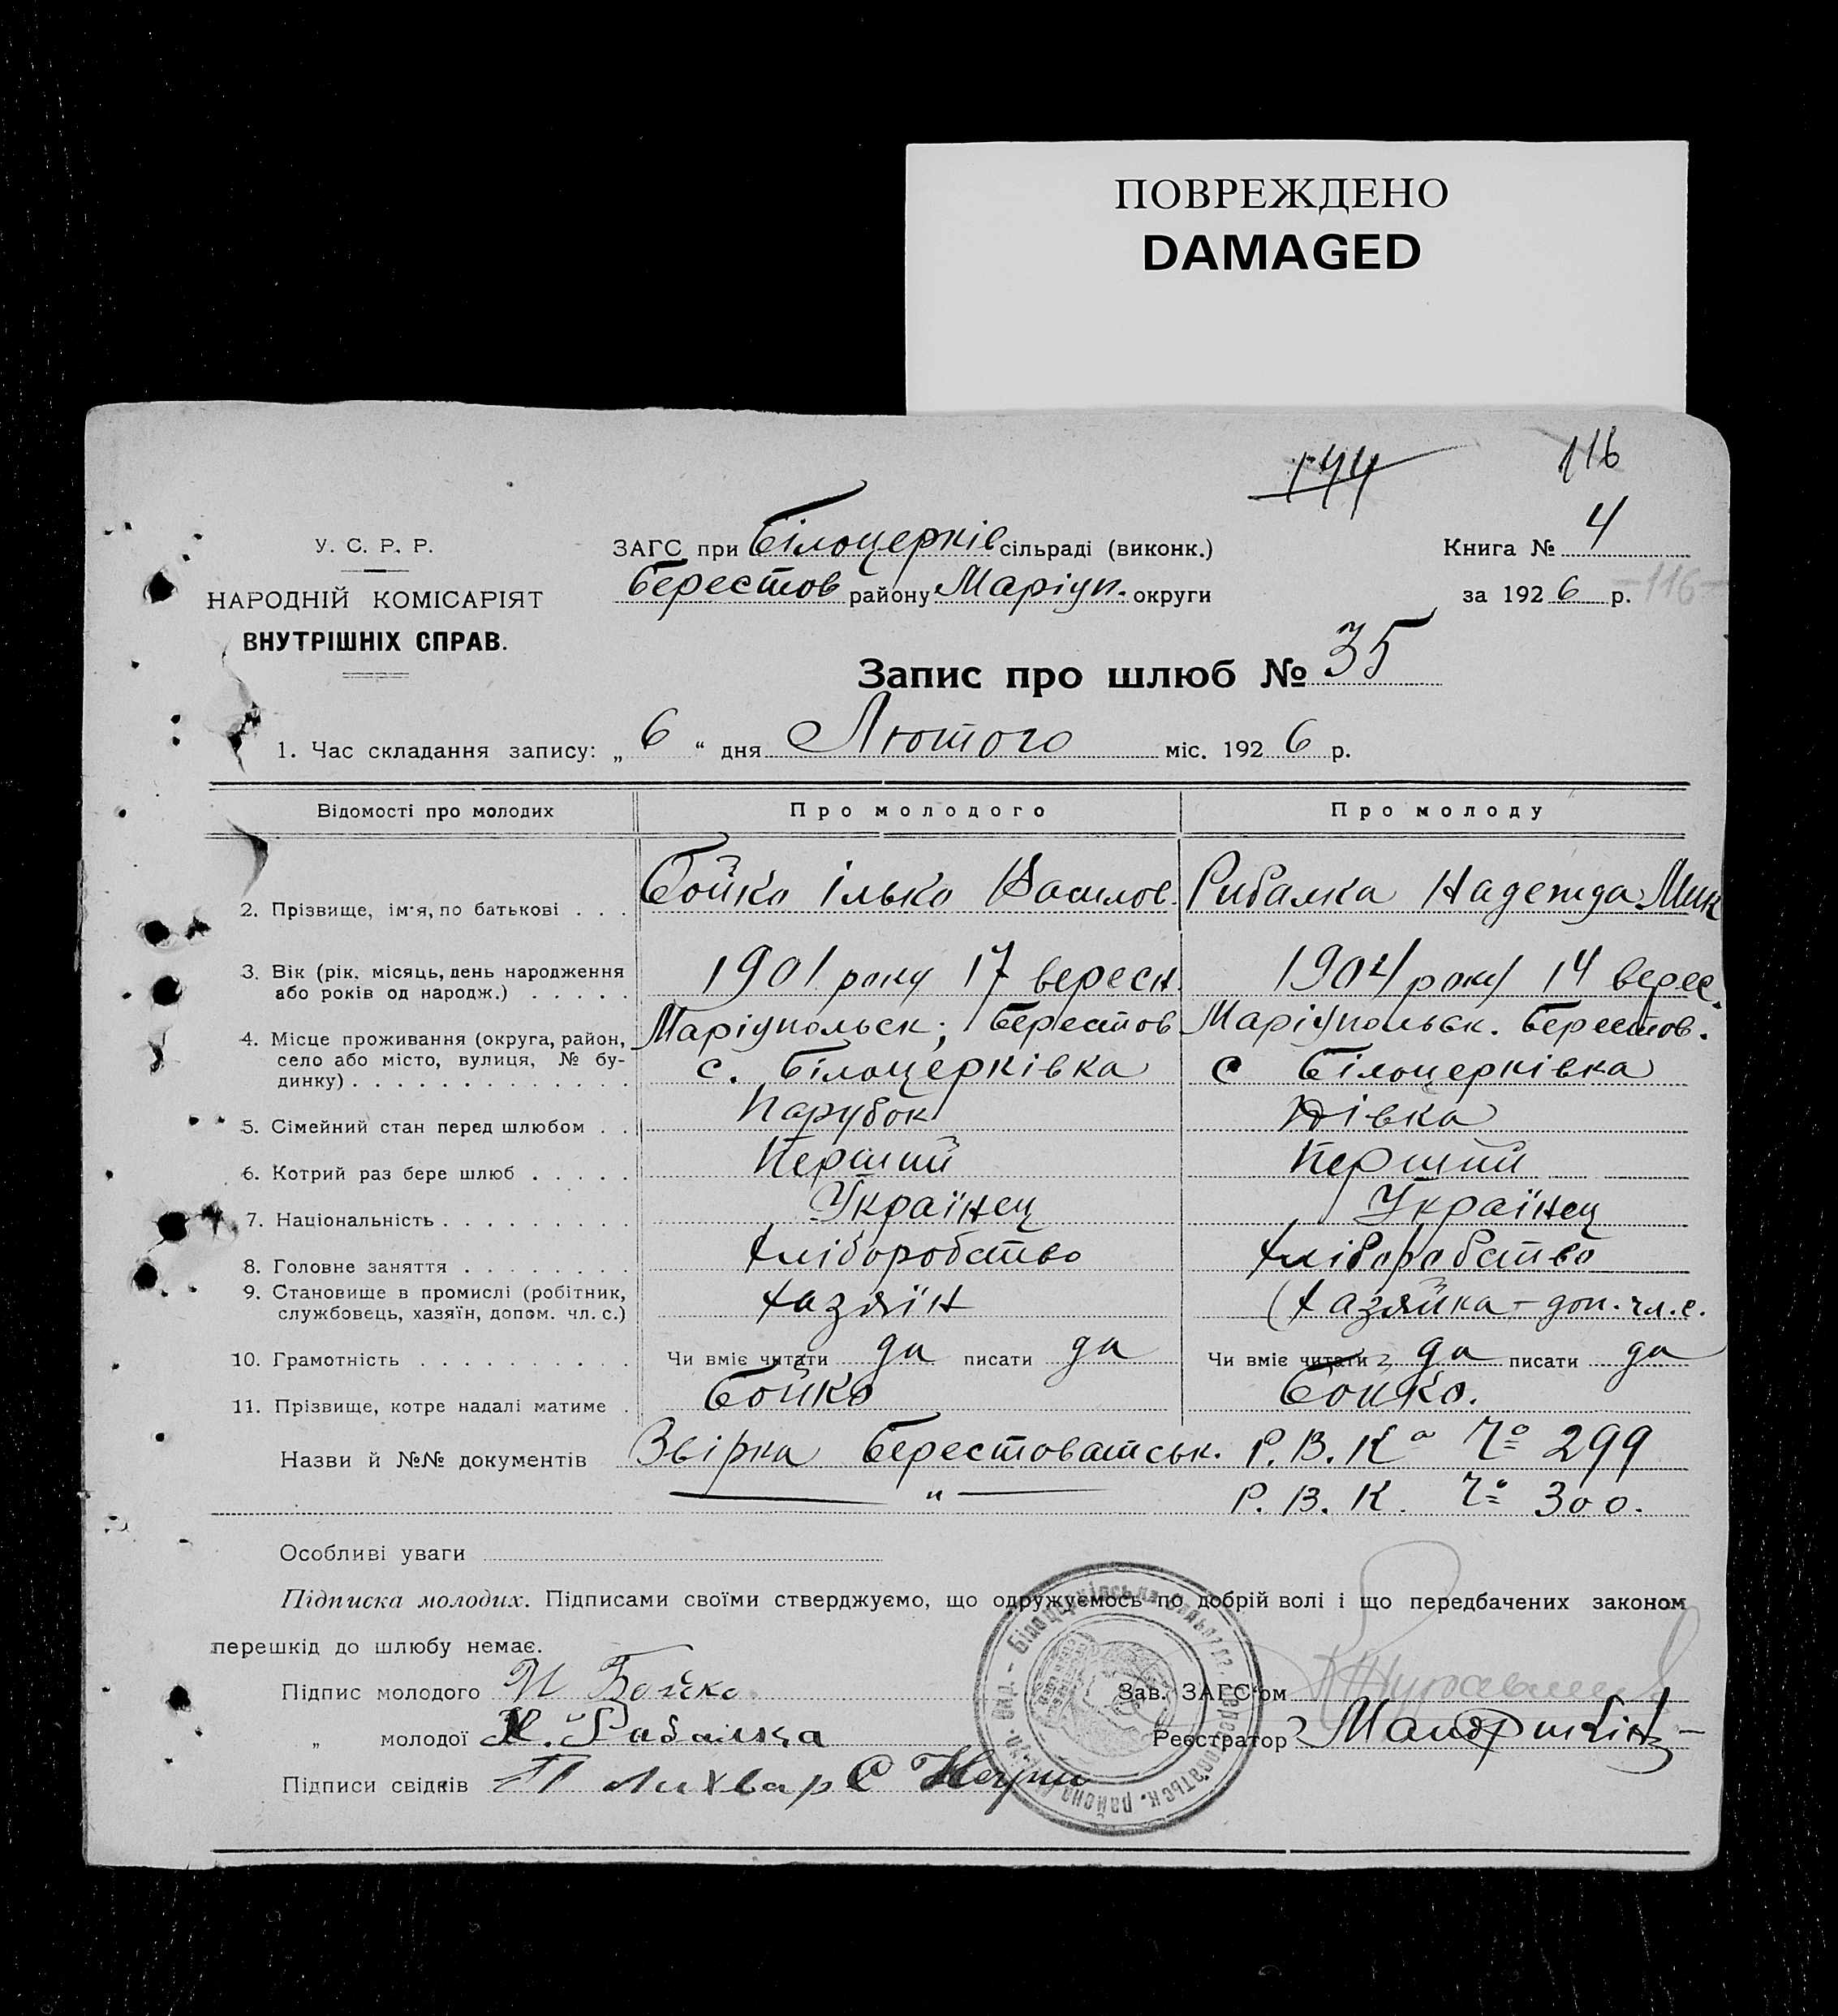 ПОВРЕЖДЕНО
DAMAGED
144
116
У. С. Р. Р.
НАРОДНІЙ КОМІСАРІЯТ
ВНУТРІШНІХ СПРАВ.
ЗАГС при Білоцерків сільраді (виконк.)
Берестов району Маріуп. округи
Книга № 4
за 1926 р. -116-
Запис про шлюб № 35
1. Час складання запису: „ 6 “ дня Лютого міс. 1926 р.
Відомості про молодих Про молодого Про молоду
2. Прізвище, ім'я, по батькові . . . Бойко Ілько Васильов. Рибалка Надежда Мик
3. Вік (рік, місяць, день народження 1901 року 17 вересн. 1904 року 14 верес.
або років од народж.) . . . . .
4. Місце проживання (округа, район, Маріупольск; Берестов Маріупольск. Берестов.
село або місто, вулиця, № бу- с. Білоцерківка с Білоцерківка
динку) . . . . . . . . . . . . .
5. Сімейний стан перед шлюбом . . Парубок Дівка
6. Котрий раз бере шлюб . . . . . Перший Перший
7. Національність . . . . . . . . . Українец Українец
8. Головне заняття . . . . . . . . Хліборобство Хліборобство
9. Становище в промислі (робітник, Хазяїн Хазяйка - доп. чл. с.
службовець, хазяїн, допом. чл. с.)
10. Грамотність . . . . . . . . . . Чи вміє читати да писати да Чи вміє читати да писати да
11. Прізвище, котре надалі матиме . Бойко Бойко.
Назви й №№ документів Звірка Берестоватськ. Р.В.Ка № 299
" Р.В.К. № 300.
Особливі уваги
Підписка молодих. Підписами своїми стверджуємо, що одружуємось по добрій волі і що передбачених законом
перешкід до шлюбу немає.
Підпис молодого И Бойко
Зав. ЗАГС'ом
„ молодої Н. Рибалка
Реєстратор
Підписи свідків П Лихвар С